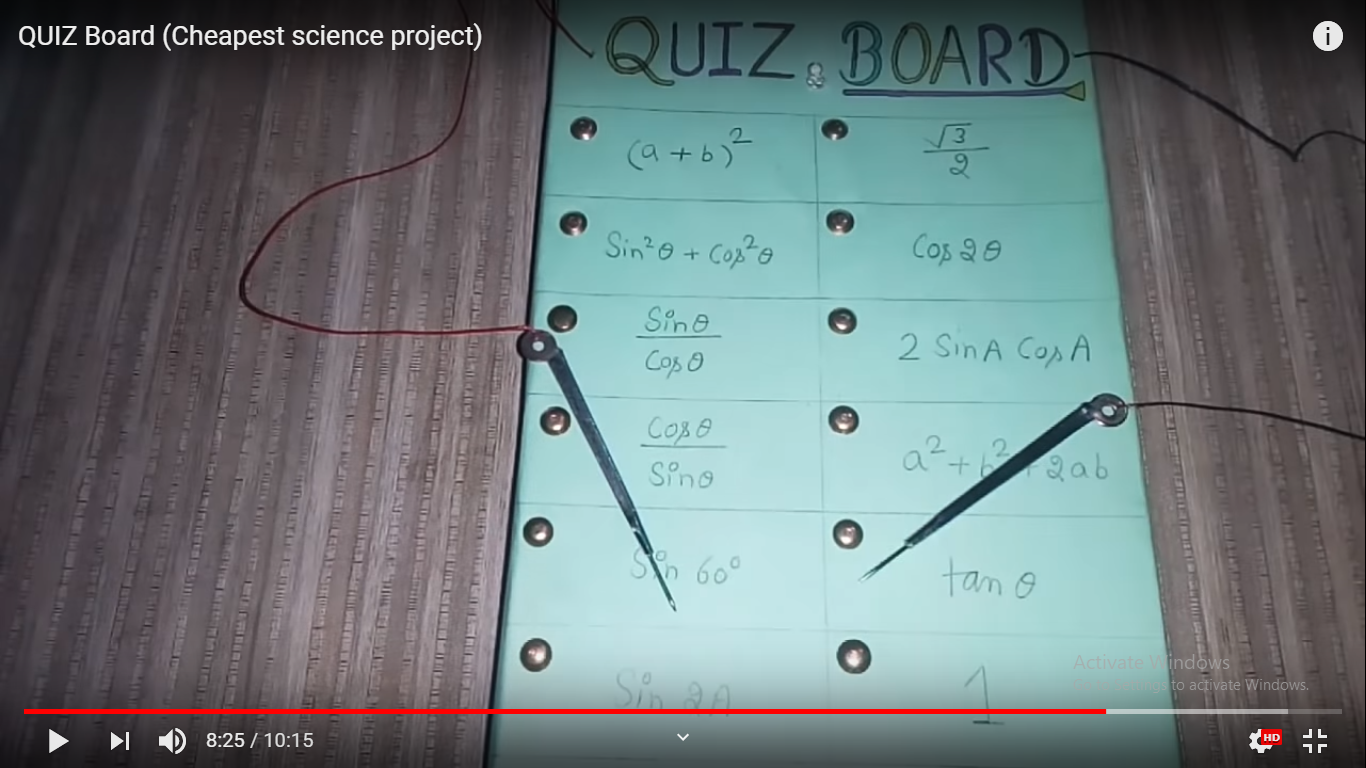 QUIZ Board (Cheapest science project)
QUIZ BOARD
(a + b)²
√3/2
Sin²θ + Cos²θ
Cos 2θ
Sinθ/Cosθ
2 SinA CosA
Cosθ/Sinθ
a² + b² + 2ab
Sin 60°
tan θ
Sin 2A
1
Activate Windows
to activate Windows.
8:25 / 10:15
HD